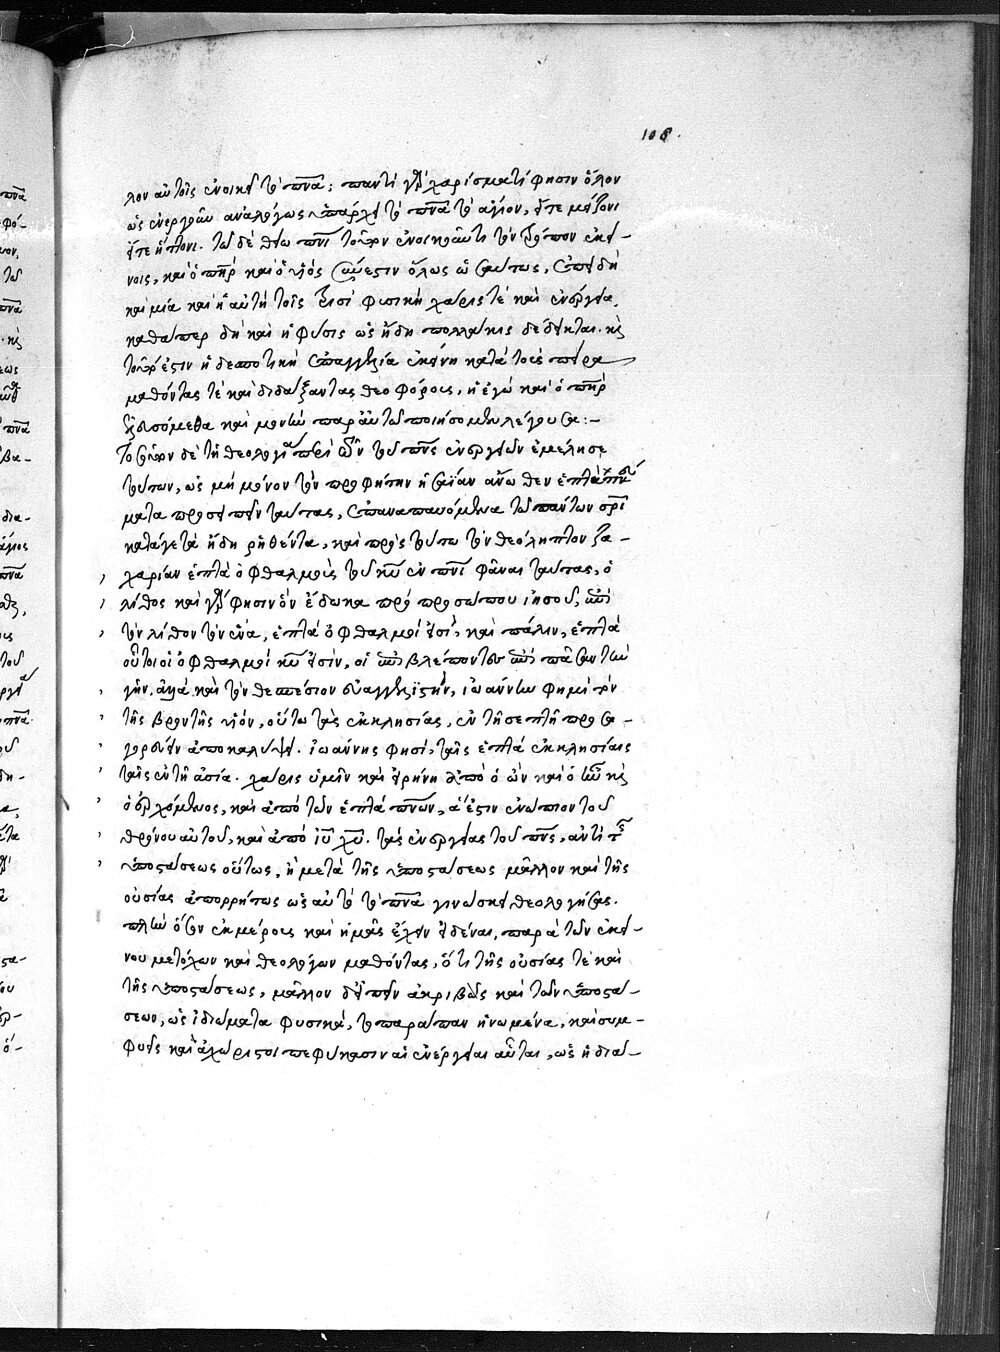 108.
λον αὐτοῖς ἐνοικεῖ τὸ πνᾶ; παντὶ γὰρ χαρίσματί φησιν ὅλον
ὡς ἐνεργοῦν ἀναλόγως ὑπάρχει τὸ πνᾶ τὸ ἅγιον, εἴτε μείζονι
εἴτε ἥττονι. τῶ δὲ θείω πνι τούτων ἐνοικοῦντι τὸν τρόπον ἐκεί-
νοις, καὶ ὁ πηρ καὶ ὁ υἱὸς σύνεστιν ὅλως ὡσαύτως, ἐπειδὴ
καὶ μία καὶ ἡ αὐτὴ τοῖς τρισὶ φυσικὴ χάρις τὲ καὶ ἐνέργεια,
καθάπερ δὴ καὶ ἡ φύσις ὡς ἤδη πολλάκις δέδεικται. κς
ἐστιν ἡ δεσποτικὴ ἐπαγγελία ἐκείνη κατὰ τοὺς πείρα
μαθόντας τὲ καὶ διδάξαντας θεοφόρους, ἡ ἐγὼ καὶ ὁ πηρ
ἐλευσόμεθα καὶ μονὴν παρ αὐτῶ ποιήσομεν λέγουσα:-
δὲ τῇ θεολογία περὶ τῶν τοῦ πνς ἐνεργειῶν ἐμέλησε
τούτων, ὡς μὴ μόνον τὸν προφήτην ἡσαΐαν ἄνωθεν ἑπτὰ πνεύ
ματα προσειπεῖν ταύτας, ἐπαναπαυόμενα τῶ παντῶν σρι
κατά γε τὰ ἤδη ῥηθέντα, καὶ πρὸς τούτω τὸν θεόληπτον ζα-
χαρίαν ἑπτὰ ὀφθαλμοὺς τοῦ κυ ἐν πνι φᾶναι ταύτας, ὁ
λίθος καὶ γάρ φησιν ὃν ἔδωκα πρὸ προσώπου ἰησοῦ, ἐπὶ
τὸν λίθον τὸν ἕνα, ἑπτὰ ὀφθαλμοί εἰσι, καὶ πάλιν, ἑπτὰ
οὗτοι οἱ ὀφθαλμοὶ κυ εἰσίν, οἱ ἐπιβλέποντες ἐπὶ πᾶσαν τὴν
γῆν. ἀλλὰ καὶ τὸν θεσπέσιον εὐαγγελιστὴν, ἰωάννην φημὶ τὸν
τῆς βροντῆς υἱόν, οὕτω τὰς ἐκκλησίας, ἐν τῇ σεπτῇ προσα-
γορεύειν ἀποκαλύψει. ἰωάννης φησὶ, ταῖς ἑπτὰ ἐκκλησίαις
ταῖς ἐν τῇ ἀσία. χάρις ὑμῖν καὶ εἰρήνη ἀπὸ ὁ ὢν καὶ ὁ ἦν κς
ὁ ἐρχόμενος, καὶ ἀπὸ τῶν ἑπτὰ πνων, ἅ ἐστιν ἐνώπιον τοῦ
θρόνου αὐτοῦ, καὶ ἀπὸ ιυ χυ. τὰς ἐνεργείας τοῦ πνς, ἀντὶ τῆς
ὑποστάσεως οὕτως, ἢ μετὰ τῆς ὑποστάσεως μᾶλλον καὶ τῆς
οὐσίας ἀπορρήτως ὡς αὐτὸ τὸ πνᾶ γινώσκει θεολογήσας.
πλὴν ὅσον ἐκ μέρους καὶ ἡμᾶς ἔχειν εἰδέναι, παρὰ τῶν ἐκεί-
νου μετόχων καὶ θεολόγων μαθόντας, ὅτι τῆς οὐσίας τὲ καὶ
τῆς ὑποστάσεως, μᾶλλον δ' εἰπεῖν ἀκριβῶς καὶ τῶν ὑποστά-
σεων, ὡς ἰδιώματα φυσικὰ, τὸ παράπαν ἡνωμένα, καὶ συμ-
φυεῖς καὶ ἀχώριστοι πεφύκασιν αἱ ἐνέργειαι αὗται, ὡς ἡ δια-